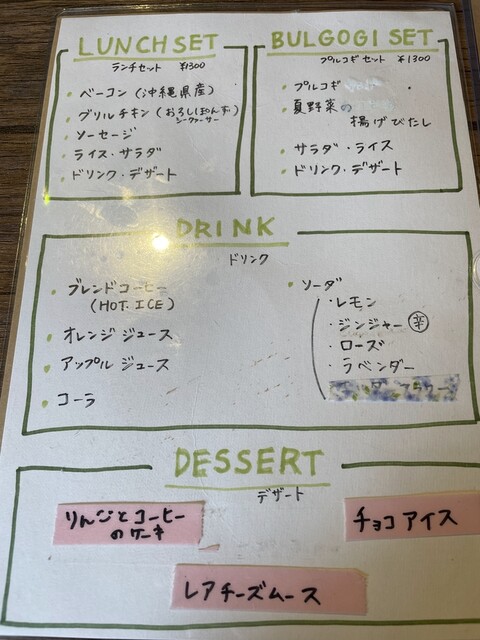 LUNCH SET
ランチセット ¥1300
・ベーコン(沖縄県産)
・グリルチキン(おろしぽんず)
シークァーサー
・ソーセージ
・ライス・サラダ
・ドリンク・デザート
BULGOGI SET
プルコギセット ¥1300
・プルコギ
夏野菜の
揚げびたし
・サラダ・ライス
・ドリンク・デザート
DRINK
ドリンク
・ブレンドコーヒー
(HOT. ICE)
・オレンジジュース
・アップルジュース
・コーラ
・ソーダ
・レモン
・ジンジャー 辛
・ローズ
・ラベンダー
DESSERT
デザート
りんごとコーヒー
のケーキ
チョコアイス
レアチーズムース